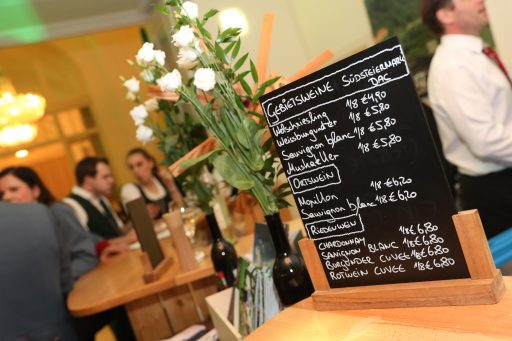 GEBIETSWEINE SÜDSTEIERMARK
DAC
Welschriesling 1/8 €4,90
Weissburgunder 1/8 €5,80
Sauvignon blanc 1/8 €5,80
Muskateller 1/8 €5,80
ORTSWEIN
Morillon 1/8 €6,20
Sauvignon blanc 1/8 €6,20
RIEDENWEIN
CHARDONNAY 1/8 €6,80
SAUVIGNON BLANC 1/8 €6,80
BURGUNDER CUVEE 1/8 €6,80
ROTWEIN CUVEE 1/8 €6,80